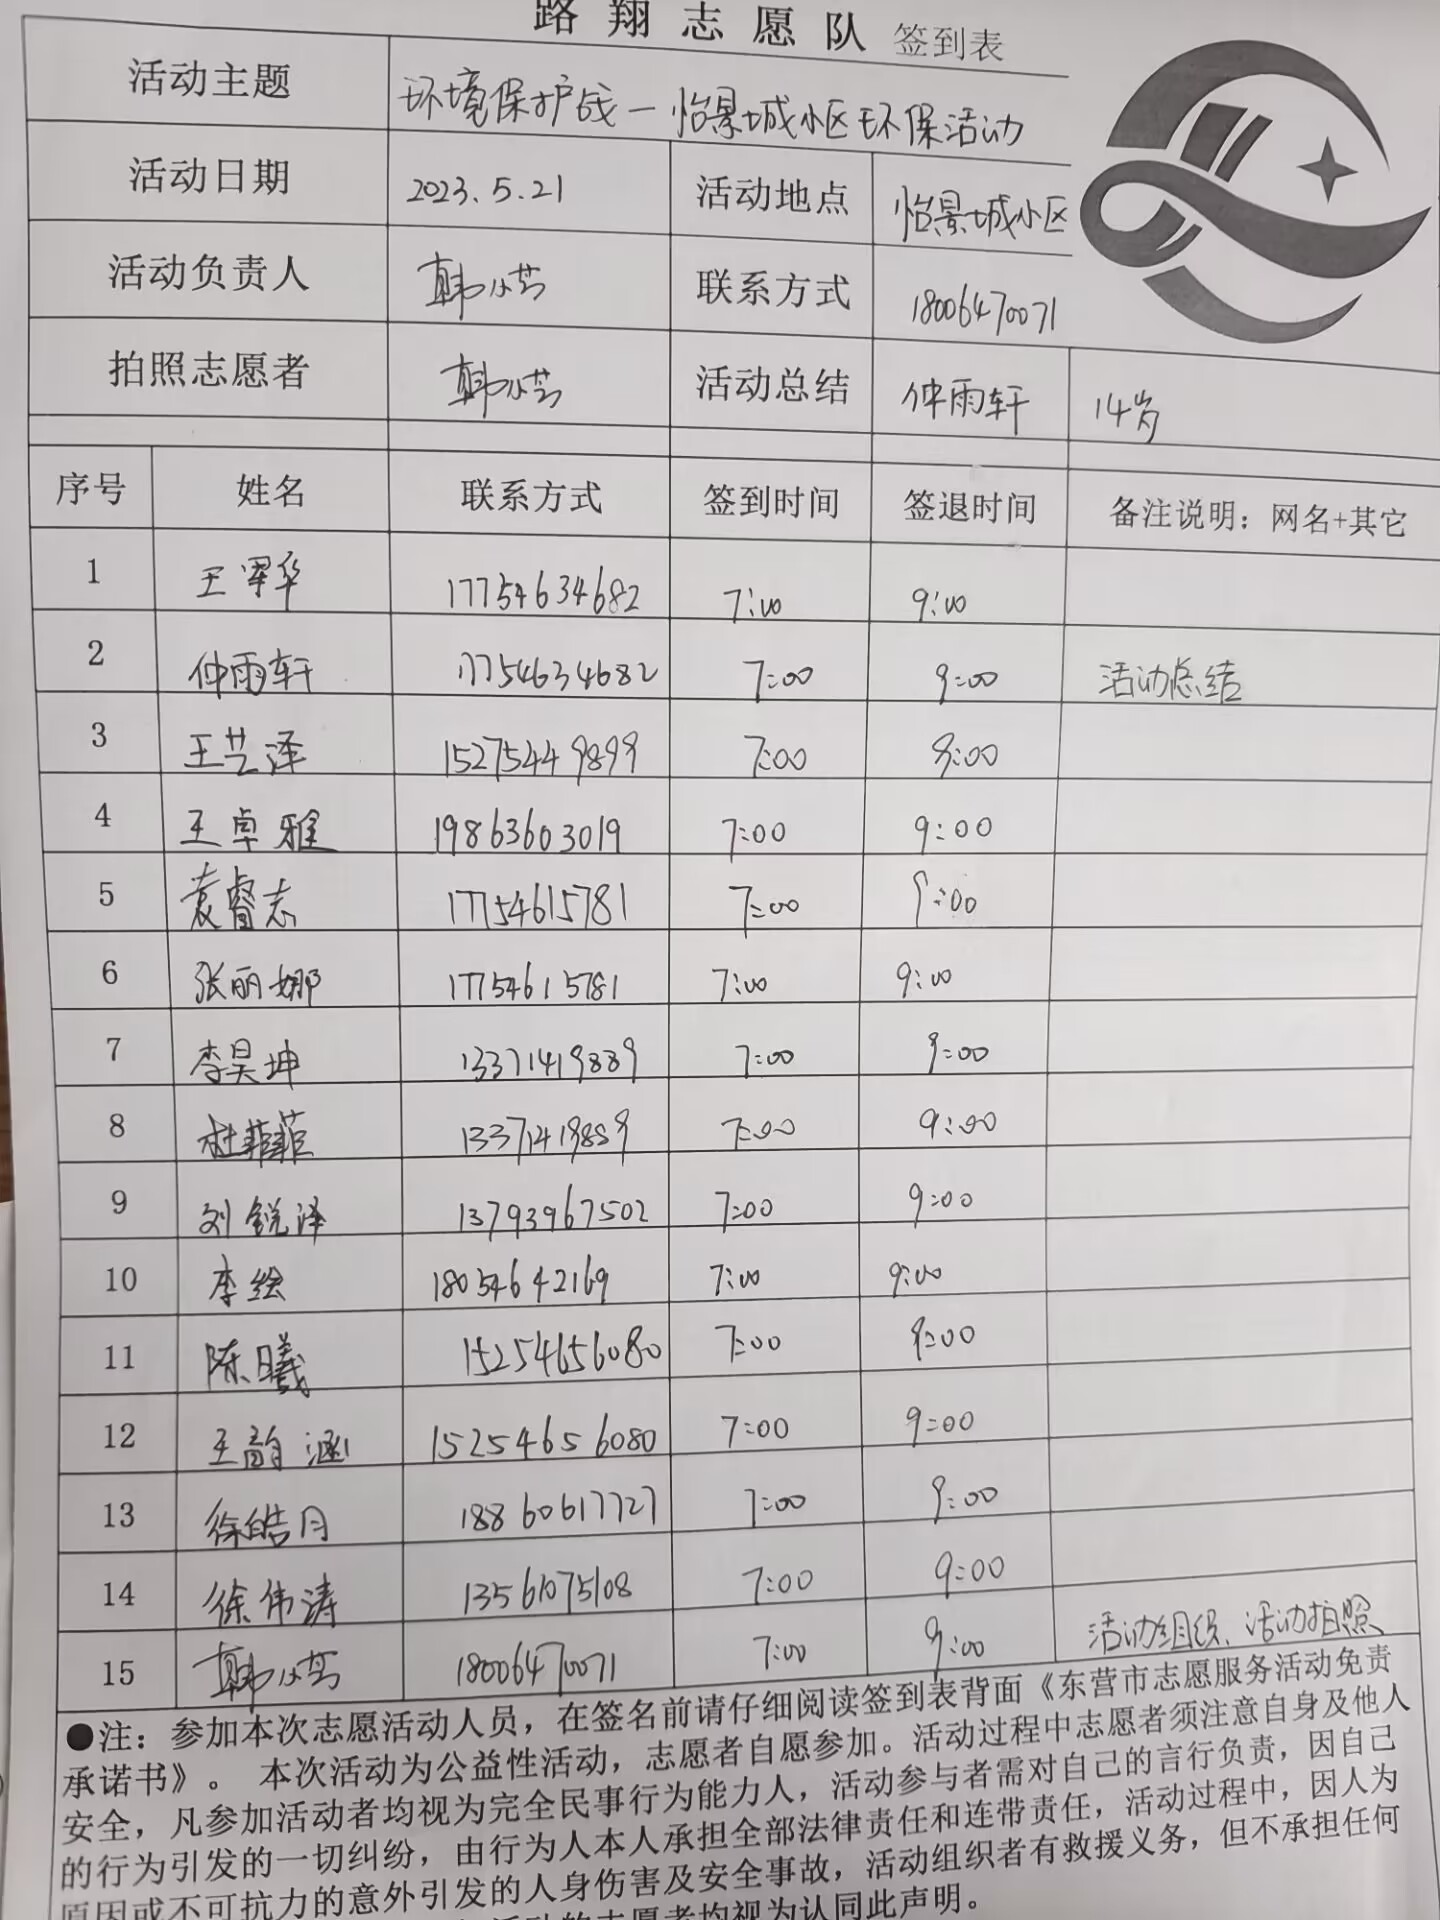 路翔志愿队 签到表
活动主题 环境保护战—怡景城小区环保活动
活动日期 2023.5.21 活动地点 怡景城小区
活动负责人 韩小芸 联系方式 18006470071
拍照志愿者 韩小芸 活动总结 仲雨轩 14岁
序号 姓名 联系方式 签到时间 签退时间 备注说明：网名+其它
1 王军华 17754634682 7:00 9:00
2 仲雨轩 17754634682 7:00 9:00 活动总结
3 王艺泽 15275449899 7:00 9:00
4 王卓雅 19863603019 7:00 9:00
5 袁睿志 17754615781 7:00 9:00
6 张丽娜 17754615781 7:00 9:00
7 李昊坤 13371419889 7:00 9:00
8 杜菲菲 13371419889 7:00 9:00
9 刘锐泽 13793967502 7:00 9:00
10 李绘 18054642169 7:00 9:00
11 陈曦 15254656080 7:00 9:00
12 王韵涵 15254656080 7:00 9:00
13 徐皓月 18860617727 7:00 9:00
14 徐伟涛 13561075108 7:00 9:00
15 韩小芸 18006470071 7:00 9:00 活动组织、活动拍照
●注：参加本次志愿活动人员，在签名前请仔细阅读签到表背面《东营市志愿服务活动免责
承诺书》。 本次活动为公益性活动，志愿者自愿参加。活动过程中志愿者须注意自身及他人
安全，凡参加活动者均视为完全民事行为能力人，活动参与者需对自己的言行负责，因自己
的行为引发的一切纠纷，由行为人本人承担全部法律责任和连带责任，活动过程中，因人为
原因或不可抗力的意外引发的人身伤害及安全事故，活动组织者有救援义务，但不承担任何
活动的志愿者均视为认同此声明。